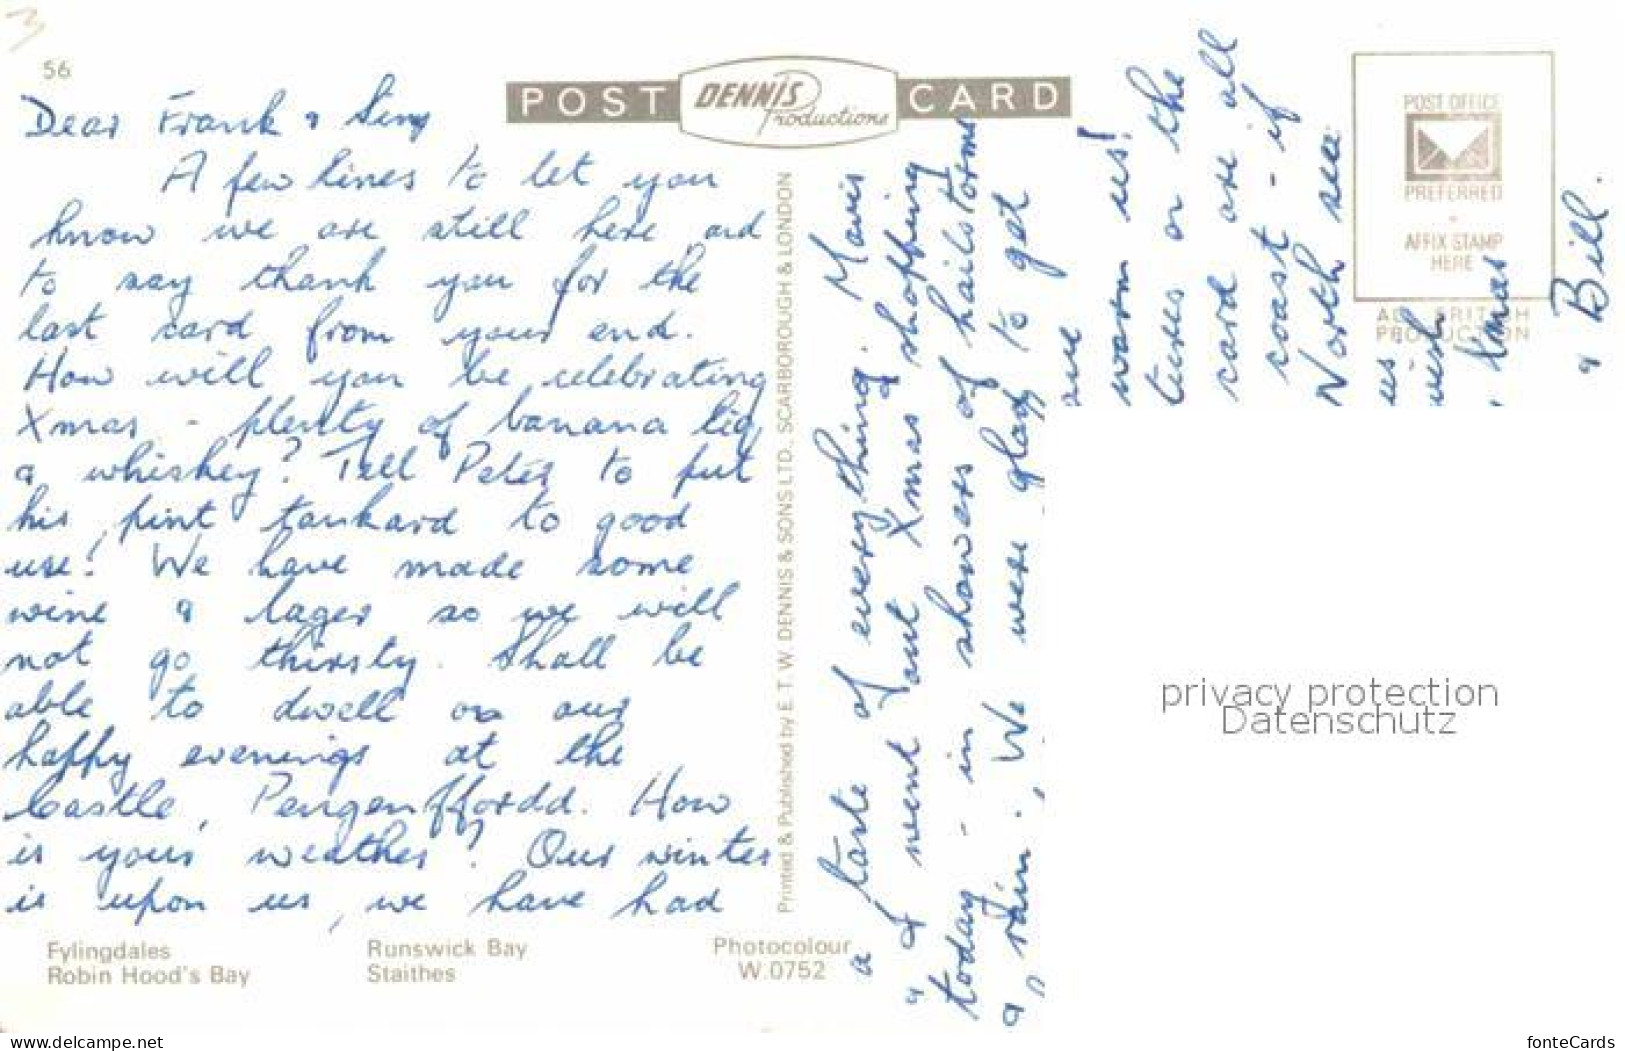 3
56
POST DENNIS Productions CARD
Dear Frank &
A few lines to let you
know we are still here and
to say thank you for the
last card from your end.
How will you be celebrating
Xmas - plenty of banana liq
& whiskey? Tell Peter to put
his pint tankard to good
use! We have made some
wine & lager so we will
not go thirsty. Shall be
able to dwell on our
happy evenings at the
Castle, Pengenffordd. How
is your weather? Our winter
is upon us, we have had
Fylingdales
Robin Hood's Bay
Runswick Bay
Staithes
Photocolour
W.0752
Printed & Published by E. T. W. DENNIS & SONS LTD., SCARBOROUGH & LONDON
a taste of everything. Mavis
& I went out Xmas shopping
today - in showers of hailstorms
& rain. We were glad to get
warm us!
tures on the
card are all
coast - if
North sea
us
wish
Xmas
& Bill.
POST OFFICE
PREFERRED
AFFIX STAMP
HERE
ALL BRITISH
PRODUCTION
privacy protection
Datenschutz
www.delcampe.net
fonteCards